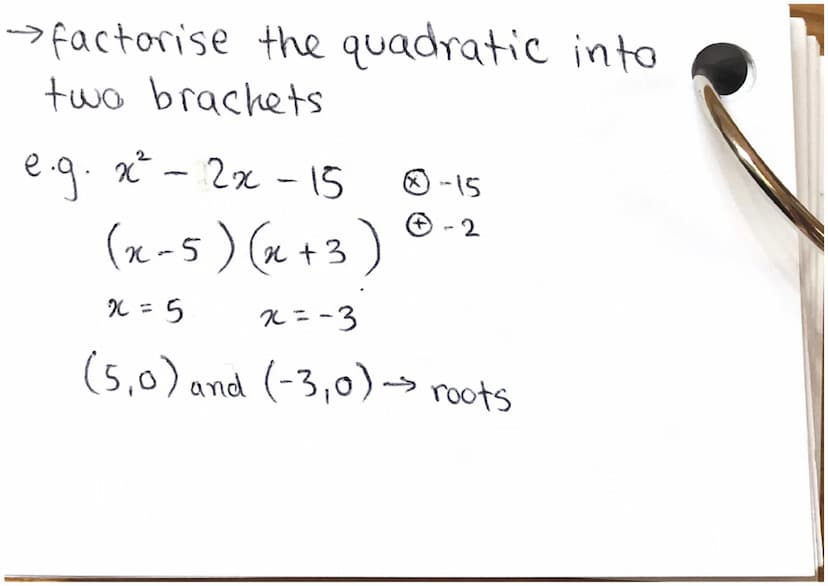 → factorise the quadratic into
two brackets
e.g. x² - 2x - 15 ⊗ -15
(x-5)(x+3) ⊕ -2
x = 5 x = -3
(5,0) and (-3,0) → roots